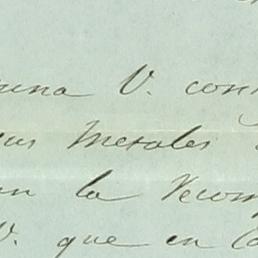 una V. con
us Metales
en la Recom
V. que en la